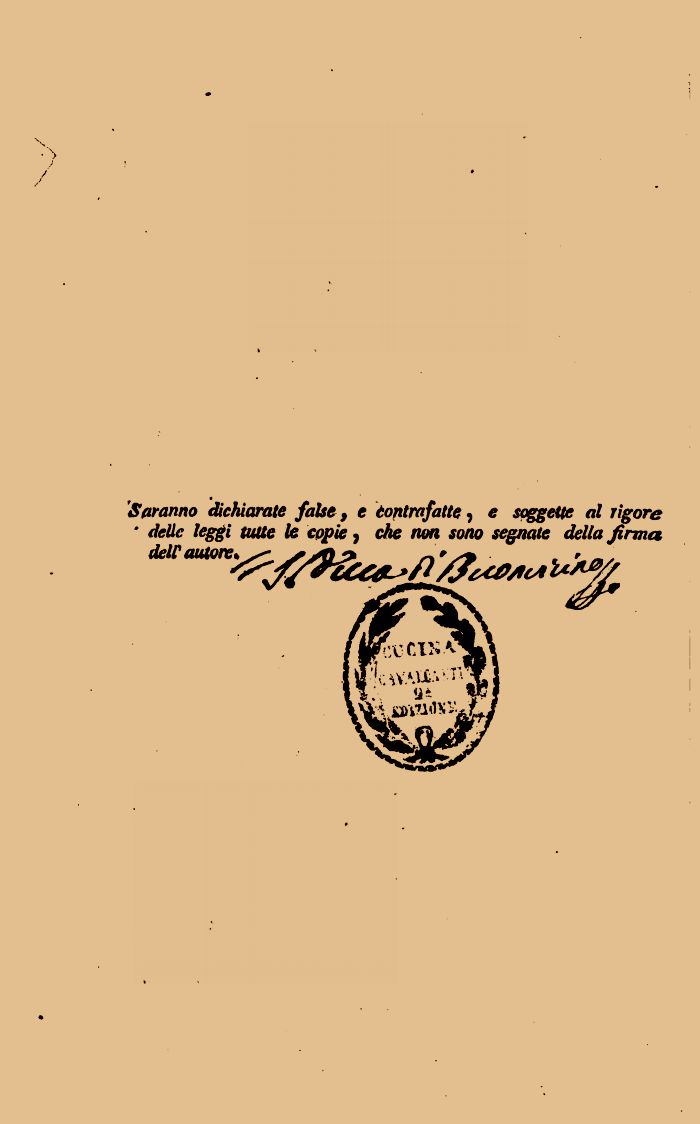 Saranno dichiarate false, e contrafatte, e soggette al rigore
delle leggi tutte le copie, che non sono segnate della firma
dell' autore.
Il Duca di Buonvicino
CUCINA
CAVALCANTI
9a
EDIZIONE